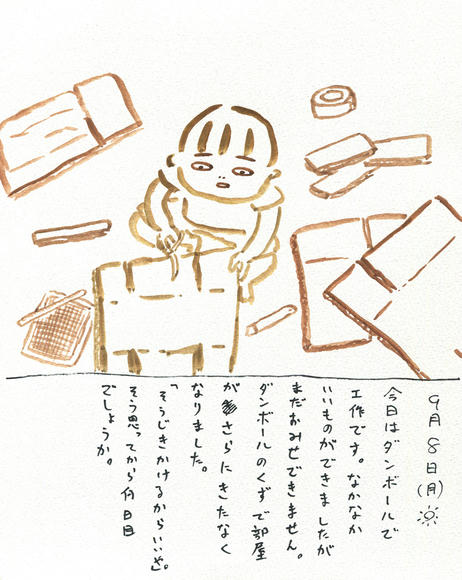 9月8日(月)
今日はダンボールで
工作です。なかなか
いいものができましたが
まだおみせできません。
ダンボールのくずで部屋
がさらにきたなく
なりました。
「そうじきかけるからいいや。」
そう思ってから何日目
でしょうか。